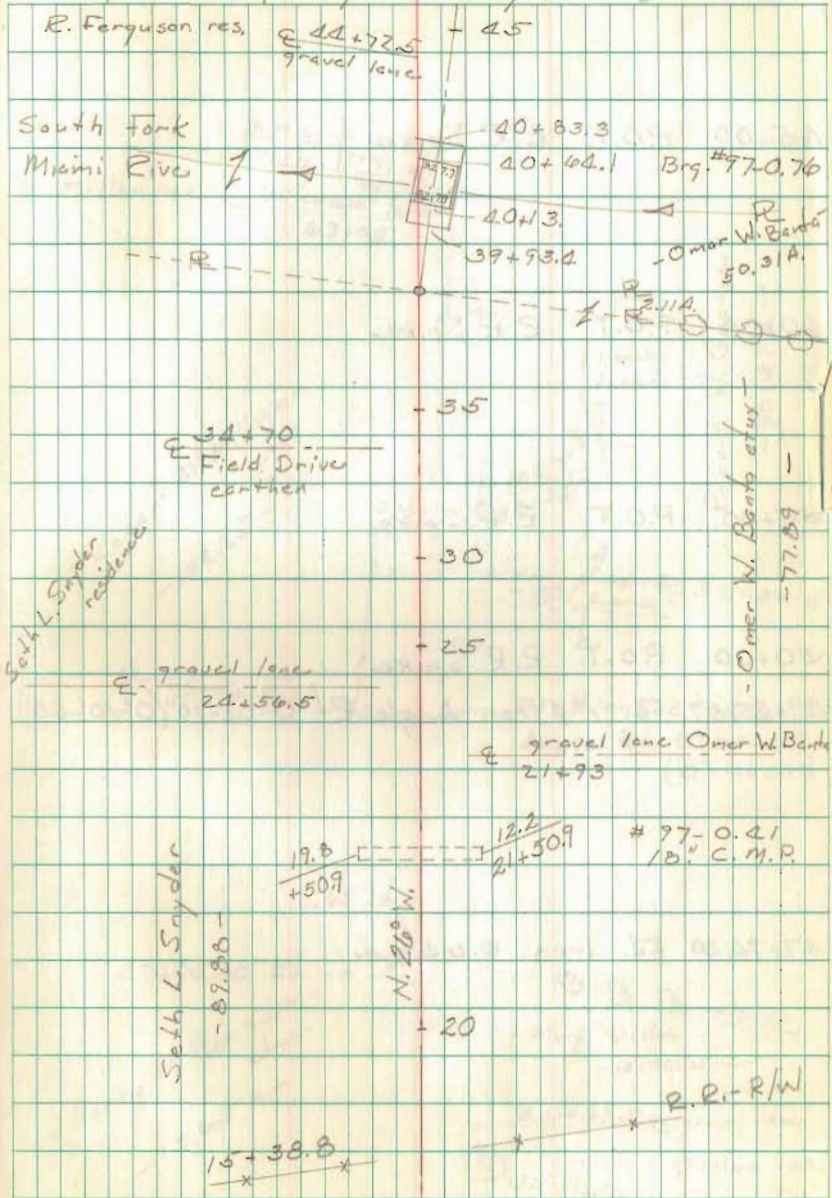 R. Ferguson res.
℄ 44+72.5
gravel lane
45
South Fork
Miami Rive
40+83.3
40+64.1
Brg. #97-0.76
40+13.
39+93.4
- Omar W. Banta
50.31A.
2.11A.
35
℄ 34+70
Field Drive
earthen
- Omer W. Banta etux -
- 77.89 -
30
Seth L. Snyder
residence
25
℄ gravel lane
24+56.5
℄ gravel lane Omer W. Banta
21+93
19.8
+50.9
12.2
21+50.9
# 97-0.41
18" C.M.P.
Seth L. Snyder
- 89.88 -
N. 26° W.
20
R.R. - R/W
15+38.8